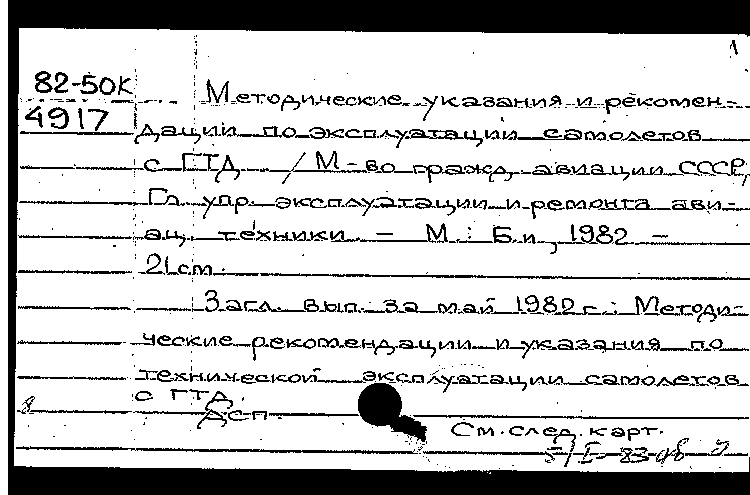 1
82-50К
4917
Методические указания и рекомен-
дации по эксплуатации самолетов
с ГТД / М-во гражд. авиации СССР,
Гл. упр. эксплуатации и ремонта ави-
ац. техники. – М.: Б.и., 1982 –
21 см.
Загл. вып. за май 1982 г.: Методи-
ческие рекомендации и указания по
технической эксплуатации самолетов
с ГТД.
ДСП.
См. след. карт.